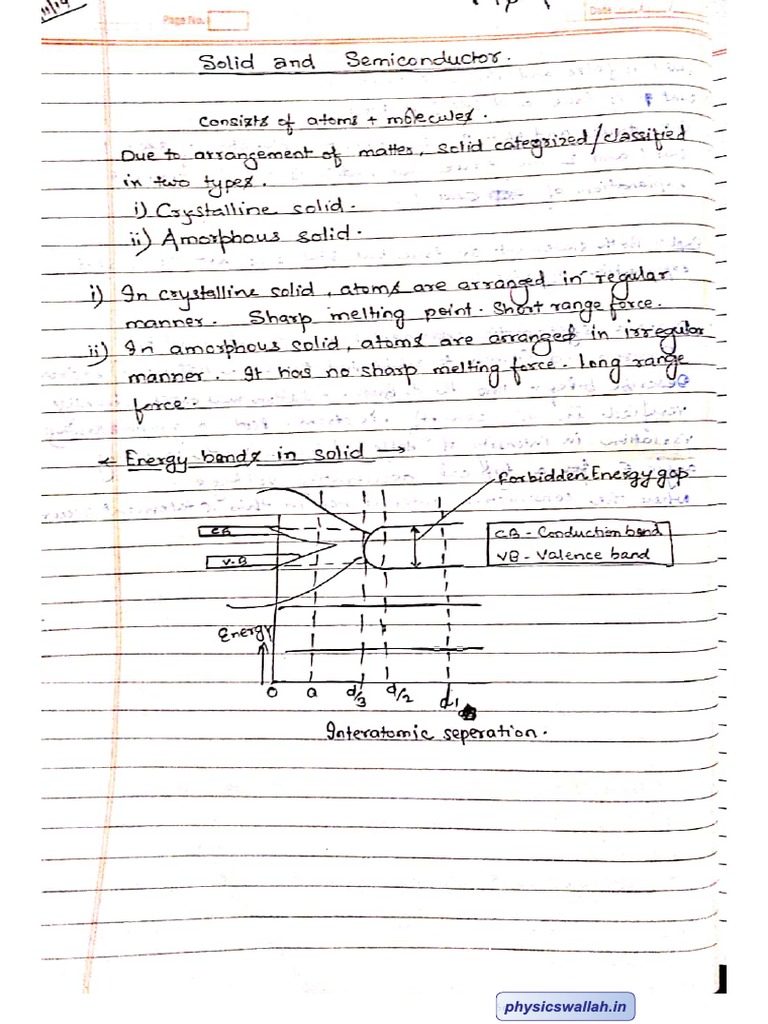 Page No.
Date
Solid and Semiconductor.
Consists of atoms + molecules.
Due to arrangement of matter, solid categrized/classified
in two types.
i) Crystalline solid.
ii) Amorphous solid.
i) In crystalline solid, atoms are arranged in regular
manner. Sharp melting point. Short range force.
ii) In amorphous solid, atoms are arranged in irregular
manner. It has no sharp melting force. Long range
force.
Energy bands in solid →
Forbidden Energy gap
CB
V.B
CB - Conduction band
VB - Valence band
Energy
0 a d/3 d/2 d1
Interatomic seperation.
physicswallah.in